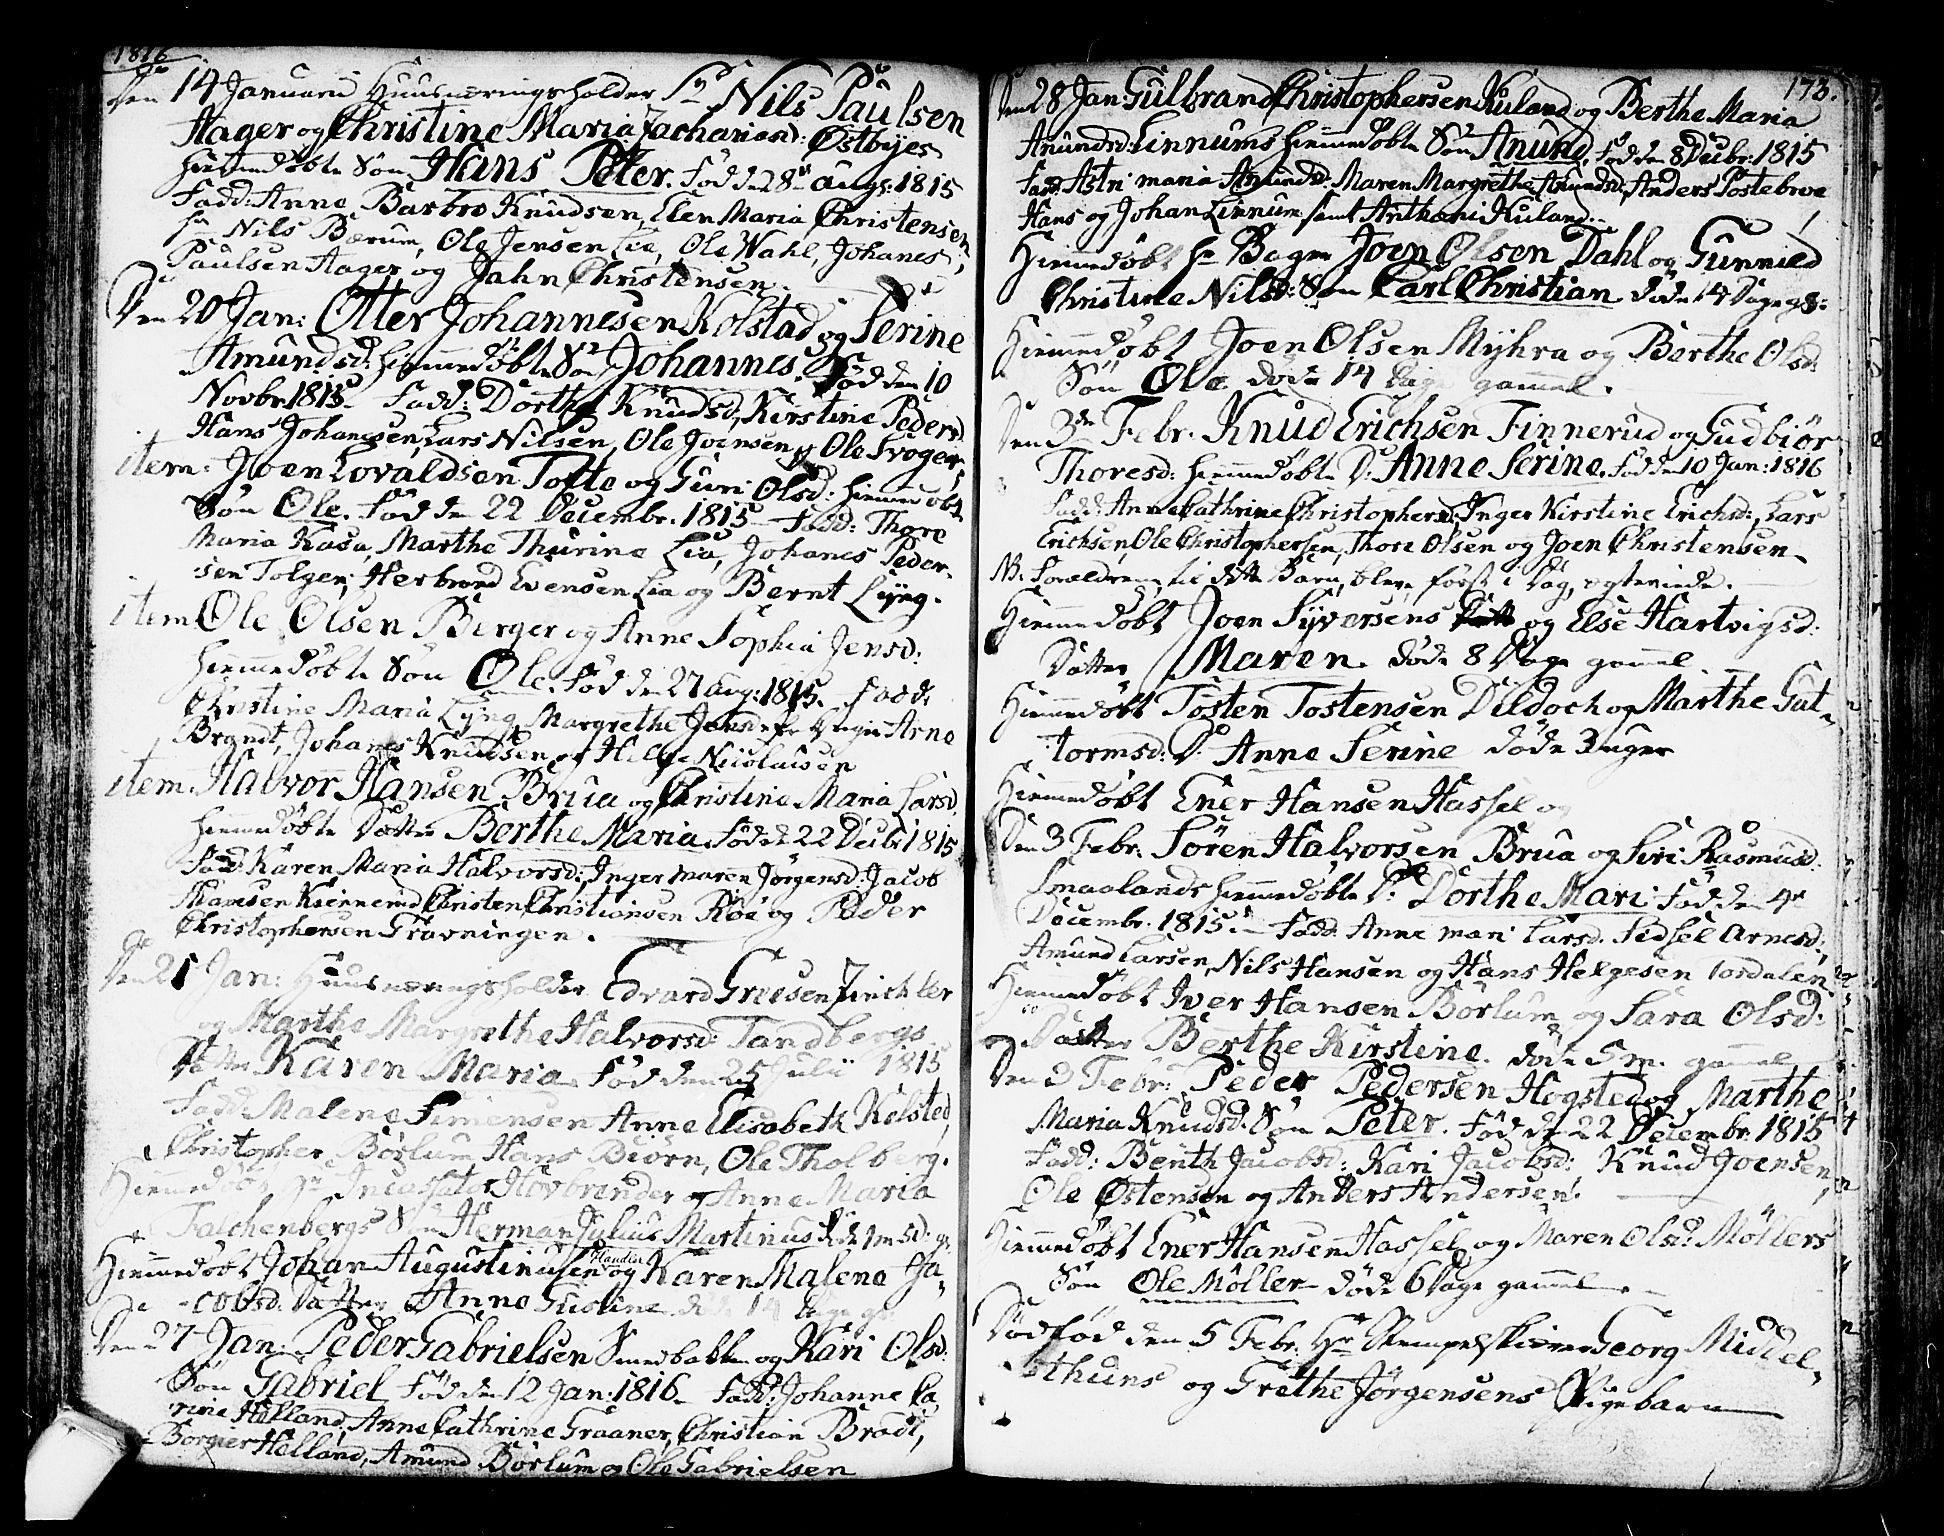 1816
Den 14 Januarii Huusnæringsholder Sr Nils Paulsen
Hager og Christine Maria Zachariasd: Østbyes
hiemmedøbte Søn Hans Peter. Fød de 28 augs: 1815
Fadd: Anne Barbro Knudsen, Elen Maria Christensen,
Hr Nils Bærum, Ole Jensen Lia, Ole Wahl, Johanes
Paulsen Hager og Jahn Christensen.
Den 20 Jan: Otter Johannesen Kolstad og Serine
Amundsd: hiemmedøbte Søn Johannes. Fød den 10
Novbr. 1815. Fadd: Dorthe Knudsd, Kirstine Pedersd
Hans Johannesen, Lars Nilsen, Ole Joensen, Ole Svoger
item: Joen Lovaldsen Tofte og Guri Olsd: hiemmedøbt
Søn Ole. Fød den 22 Decembr. 1815 Fadd: Thore
Maria Kasa, Marthe Thurine Lia, Johanes Peder-
sen Tolgen, Herbrand Evensen Lia og Bernt Lyng.
item Ole Olsen Berger og Anne Sophia Jensd:
hiemmedøbte Søn Ole. Fød de 27 aug: 1815. Fadd:
Christine Maria Lyng, Margrethe Jensd Arne
Brandt, Johanes Knudsen og Helge Nicolaisen
item. Halvor Hansen Brua og Christine Maria Larsd
hiemmedøbte Datter Berthe Maria. Fød d 22 Decbr 1815
Fadd Karen Maria Halvorsd: Inger Maren Jørgensd: Jacob
Hansen Kiennerud Christen Christiansen Røe og Peder
Christophersen Gravningen.
Den 21 Jan: Huusnæringsholder Edvard Greesen Zinchler
og Marthe Margrethe Halvorsd: Tandbergs
Datter Karen Maria. Fød den 25 Julii 1815
Fadd Malene Simensen Anne Elisabeth Kolsted,
Christopher Børlum Hans Biørn, Ole Tholberg.
Hiemmedøbt Hr Hovbrender og Anne Maria
Falchenbergs Søn Herman Julius Martinus
Hiemmedøbt Johan Augustinusen og Karen Malene Ja-
cobsd: Datter Anne Gustine døde 14 Dage gl:
Den 27 Jan: Peder Gabrielsen Smedbakken og Kari Olsd:
Søn Gabriel Fød den 12 Jan: 1816. Fadd: Johanne Ca
rine Helland, Anne Cathrine Graaner, Christian Bradt,
Borger Helland, Amund Børlum og Ole Gabrielsen
173.
Den 28 Jan Gulbrand Christophersen Ruland og Berthe Maria
Anundsd: Linnums hiemmedøbte Søn Anund. Fød den 8 Decbr: 1815
Fadd: Astri Maria Anundsd: Maren Margrethe Anundsd, Anders Postebroe
Hans og Johan Linnum samt Anthoni Ruland.
Hiemmedøbt Hr Joen Olsen Dahl og Gunnild
Christine Nilsd: Søn Carl Christian døde 14 Dage gl:
Hiemmedøbt Joen Olsen Myhra og Berthe Olsd:
Søn Ole. døde 14 Dage gammel.
Den 3de Febr. Knud Erichsen Finnerud og Gudbiør
Thoresd: hiemmedøbte D: Anne Serine. Fød den 10 Jan: 1816
Fadd: Anne Cathrine Christophersd: Inger Kirstine Erichsd:, Lars
Erichsen, Ole Christophersen, Thore Olsen og Joen Christensen
NB. Forældrene til dette Barn, bleve først i Dag, egteviede.
Hiemmedøbt Joen Syversens og Else Hartvigsd:
Datter Maren. døde 8 Dage gammel
Hiemmedøbt Tosten Tostensen Dildoch og Marthe Gut-
tormsd: D: Anne Serine døde 3 uger
Hiemmedøbt Ener Hansen Hassel og
Den 3 Febr: Søren Halvorsen Brua og Siri Rasmusd:
Smaalands hiemmedøbte D: Dorthe Mari Fød den 4
Decembr. 1815. Fadd. Anne Mari Larsd. Sidsel Arnesd:
Amund Larsen, Nils Hansen og Hans Helgesen Jordalen
Hiemmedøbt Iver Hansen Børlum og Sara Olsd:
Datter Berthe Kirstine. døde 5 m. gammel
Den 3 Febr: Peder Pedersen Hogsted og Marthe
Maria Knudsd: Søn Peter. Fød de 22 Decembr 1815
Fadd: Benth Jacobsd: Kari Jacobsd: Knud Joensen,
Ole Østensen og Anders Andersen.
Hiemmedøbt Ener Hansen Hassel og Maren Olsd: Møllers
Søn Ole Møller døde 6 Dage gammel.
Dødfød den 5 Febr. Hr Stempelskiærer Georg Middel-
thuns og Grethe Jørgensens Pigebarn